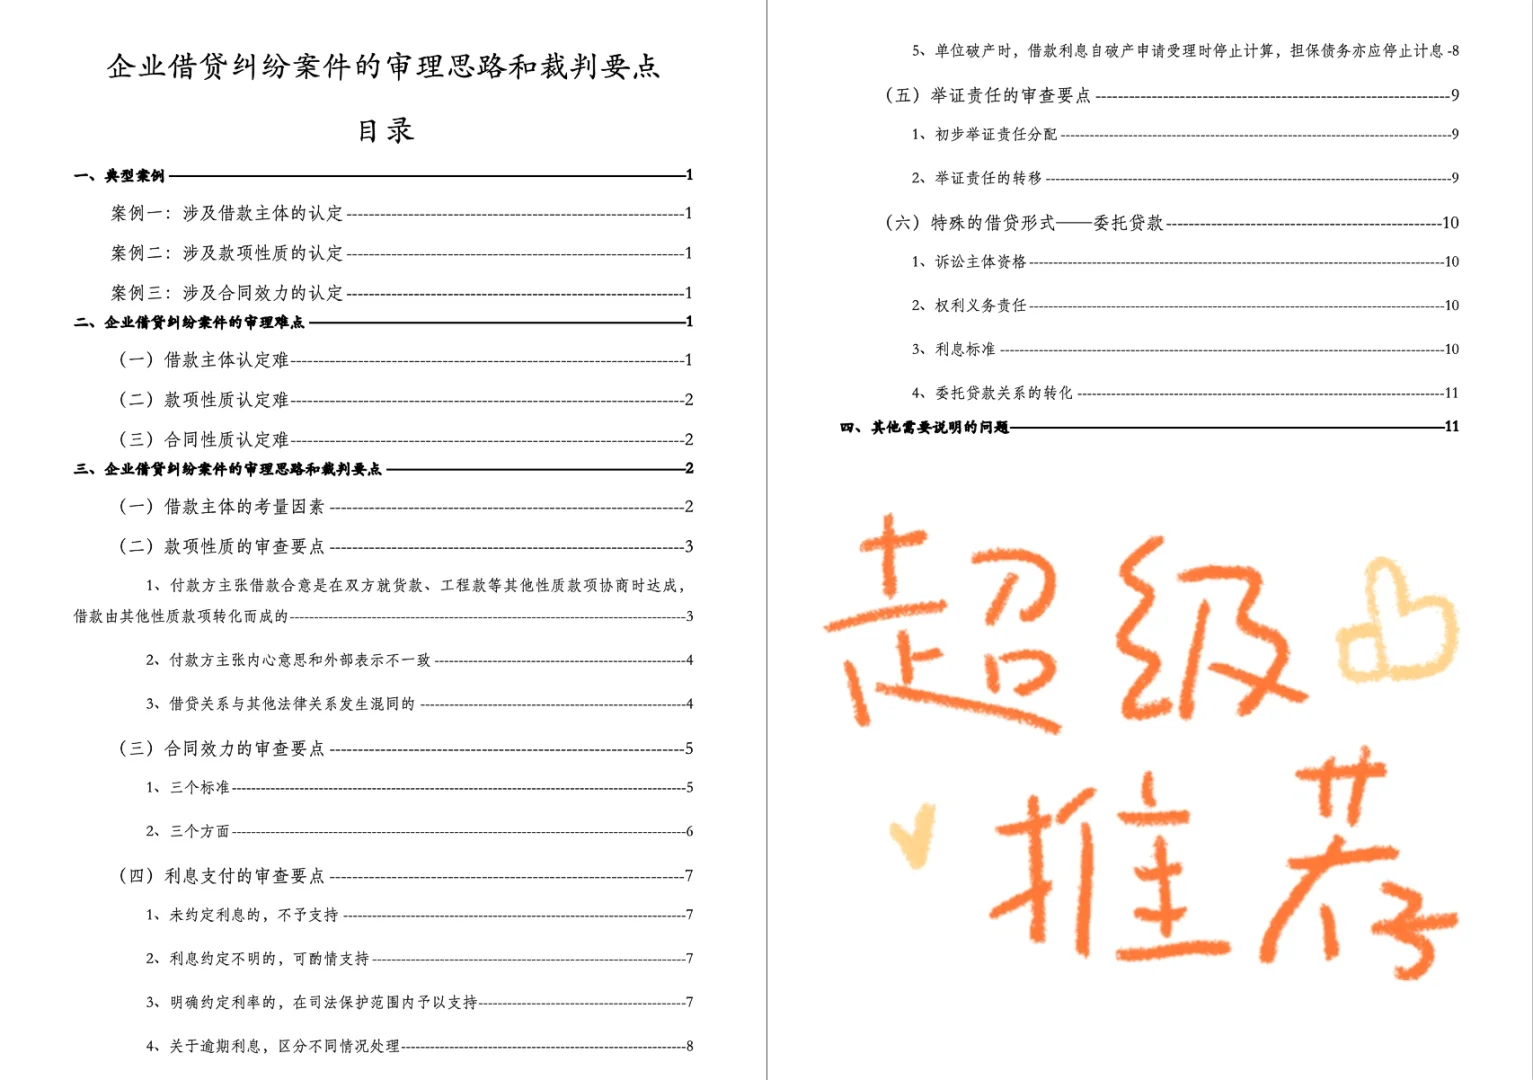 企业借贷纠纷案件的审理思路和裁判要点
目录
一、典型案例 1
案例一：涉及借款主体的认定 1
案例二：涉及款项性质的认定 1
案例三：涉及合同效力的认定 1
二、企业借贷纠纷案件的审理难点 1
（一）借款主体认定难 1
（二）款项性质认定难 2
（三）合同性质认定难 2
三、企业借贷纠纷案件的审理思路和裁判要点 2
（一）借款主体的考量因素 2
（二）款项性质的审查要点 3
1、付款方主张借款合意是在双方就货款、工程款等其他性质款项协商时达成，
借款由其他性质款项转化而成的 3
2、付款方主张内心意思和外部表示不一致 4
3、借贷关系与其他法律关系发生混同的 4
（三）合同效力的审查要点 5
1、三个标准 5
2、三个方面 6
（四）利息支付的审查要点 7
1、未约定利息的，不予支持 7
2、利息约定不明的，可酌情支持 7
3、明确约定利率的，在司法保护范围内予以支持 7
4、关于逾期利息，区分不同情况处理 8
5、单位破产时，借款利息自破产申请受理时停止计算，担保债务亦应停止计息 -8
（五）举证责任的审查要点 9
1、初步举证责任分配 9
2、举证责任的转移 9
（六）特殊的借贷形式——委托贷款 10
1、诉讼主体资格 10
2、权利义务责任 10
3、利息标准 10
4、委托贷款关系的转化 11
四、其他需要说明的问题 11
超级
推荐